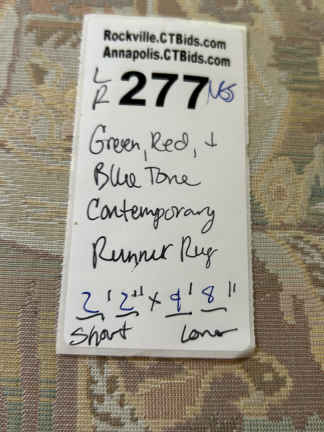 Rockville.CTBids.com
Annapolis.CTBids.com
LR 277
Green, Red, +
Blue Tone
Contemporary
Runner Rug
2' 2" x 9' 8"
Short